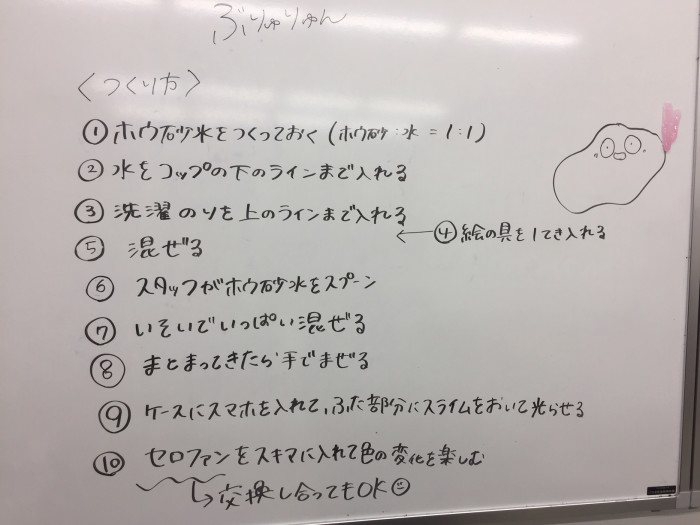 ぶりゅりゅん
〈つくり方〉
①ホウ砂水をつくっておく(ホウ砂:水=1:1)
②水をコップの下のラインまで入れる
③洗濯のりを上のラインまで入れる
←④絵の具を1てき入れる
⑤混ぜる
⑥スタッフがホウ砂水をスプーン
⑦いそいでいっぱい混ぜる
⑧まとまってきたら手でまぜる
⑨ケースにスマホを入れて、ふた部分にスライムをおいて光らせる
⑩セロファンをスキマに入れて色の変化を楽しむ
↳交換し合ってもOK☺